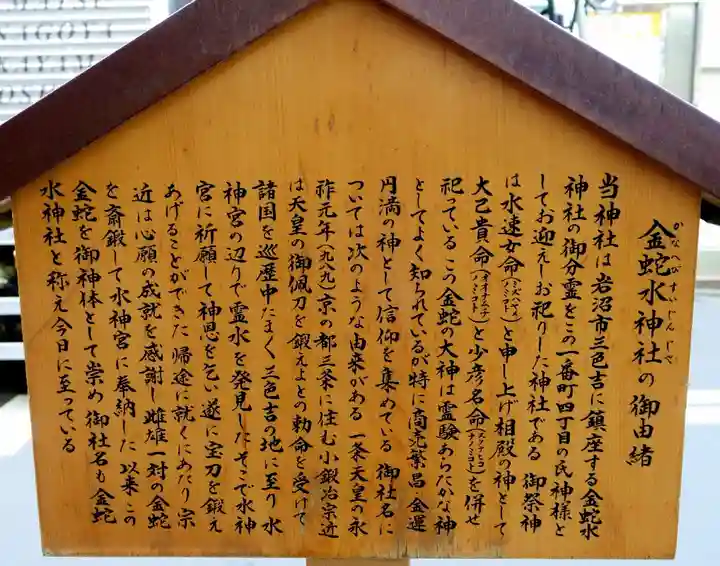 金蛇水神社の御由緒
かなへびすいじんじゃ
当神社は岩沼市三色吉に鎮座する金蛇水
神社の御分霊をこの一番町四丁目の氏神様と
してお迎えしお祀りした神社である 御祭神
は水速女命(ミズハヤメノミコト)と申し上げ相殿の神として
大己貴命(オオナムチノミコト)と少彦名命(スクナヒコナノミコト)を併せ
祀っている この金蛇の大神は霊験あらたかな神
としてよく知られているが特に商売繁昌・金運
円満の神として信仰を集めている 御社名に
ついては次のような由来がある 一条天皇の永
祚元年(九八九)京の都三条に住む小鍛冶宗近
は天皇の御佩刀を鍛えよとの勅命を受けて
諸国を巡歴中たまく三色吉の地に至り水
神宮の辺りで霊水を発見した そこで水神
宮に祈願して神恩を乞い遂に宝刀を鍛え
あげることができた 帰途に就くにあたり宗
近は心願の成就を感謝し雌雄一対の金蛇
を斎鍛して水神宮に奉納した 以来この
金蛇を御神体として崇め御社名も金蛇
水神社と称え今日に至っている
NIGOYI
KAYAM